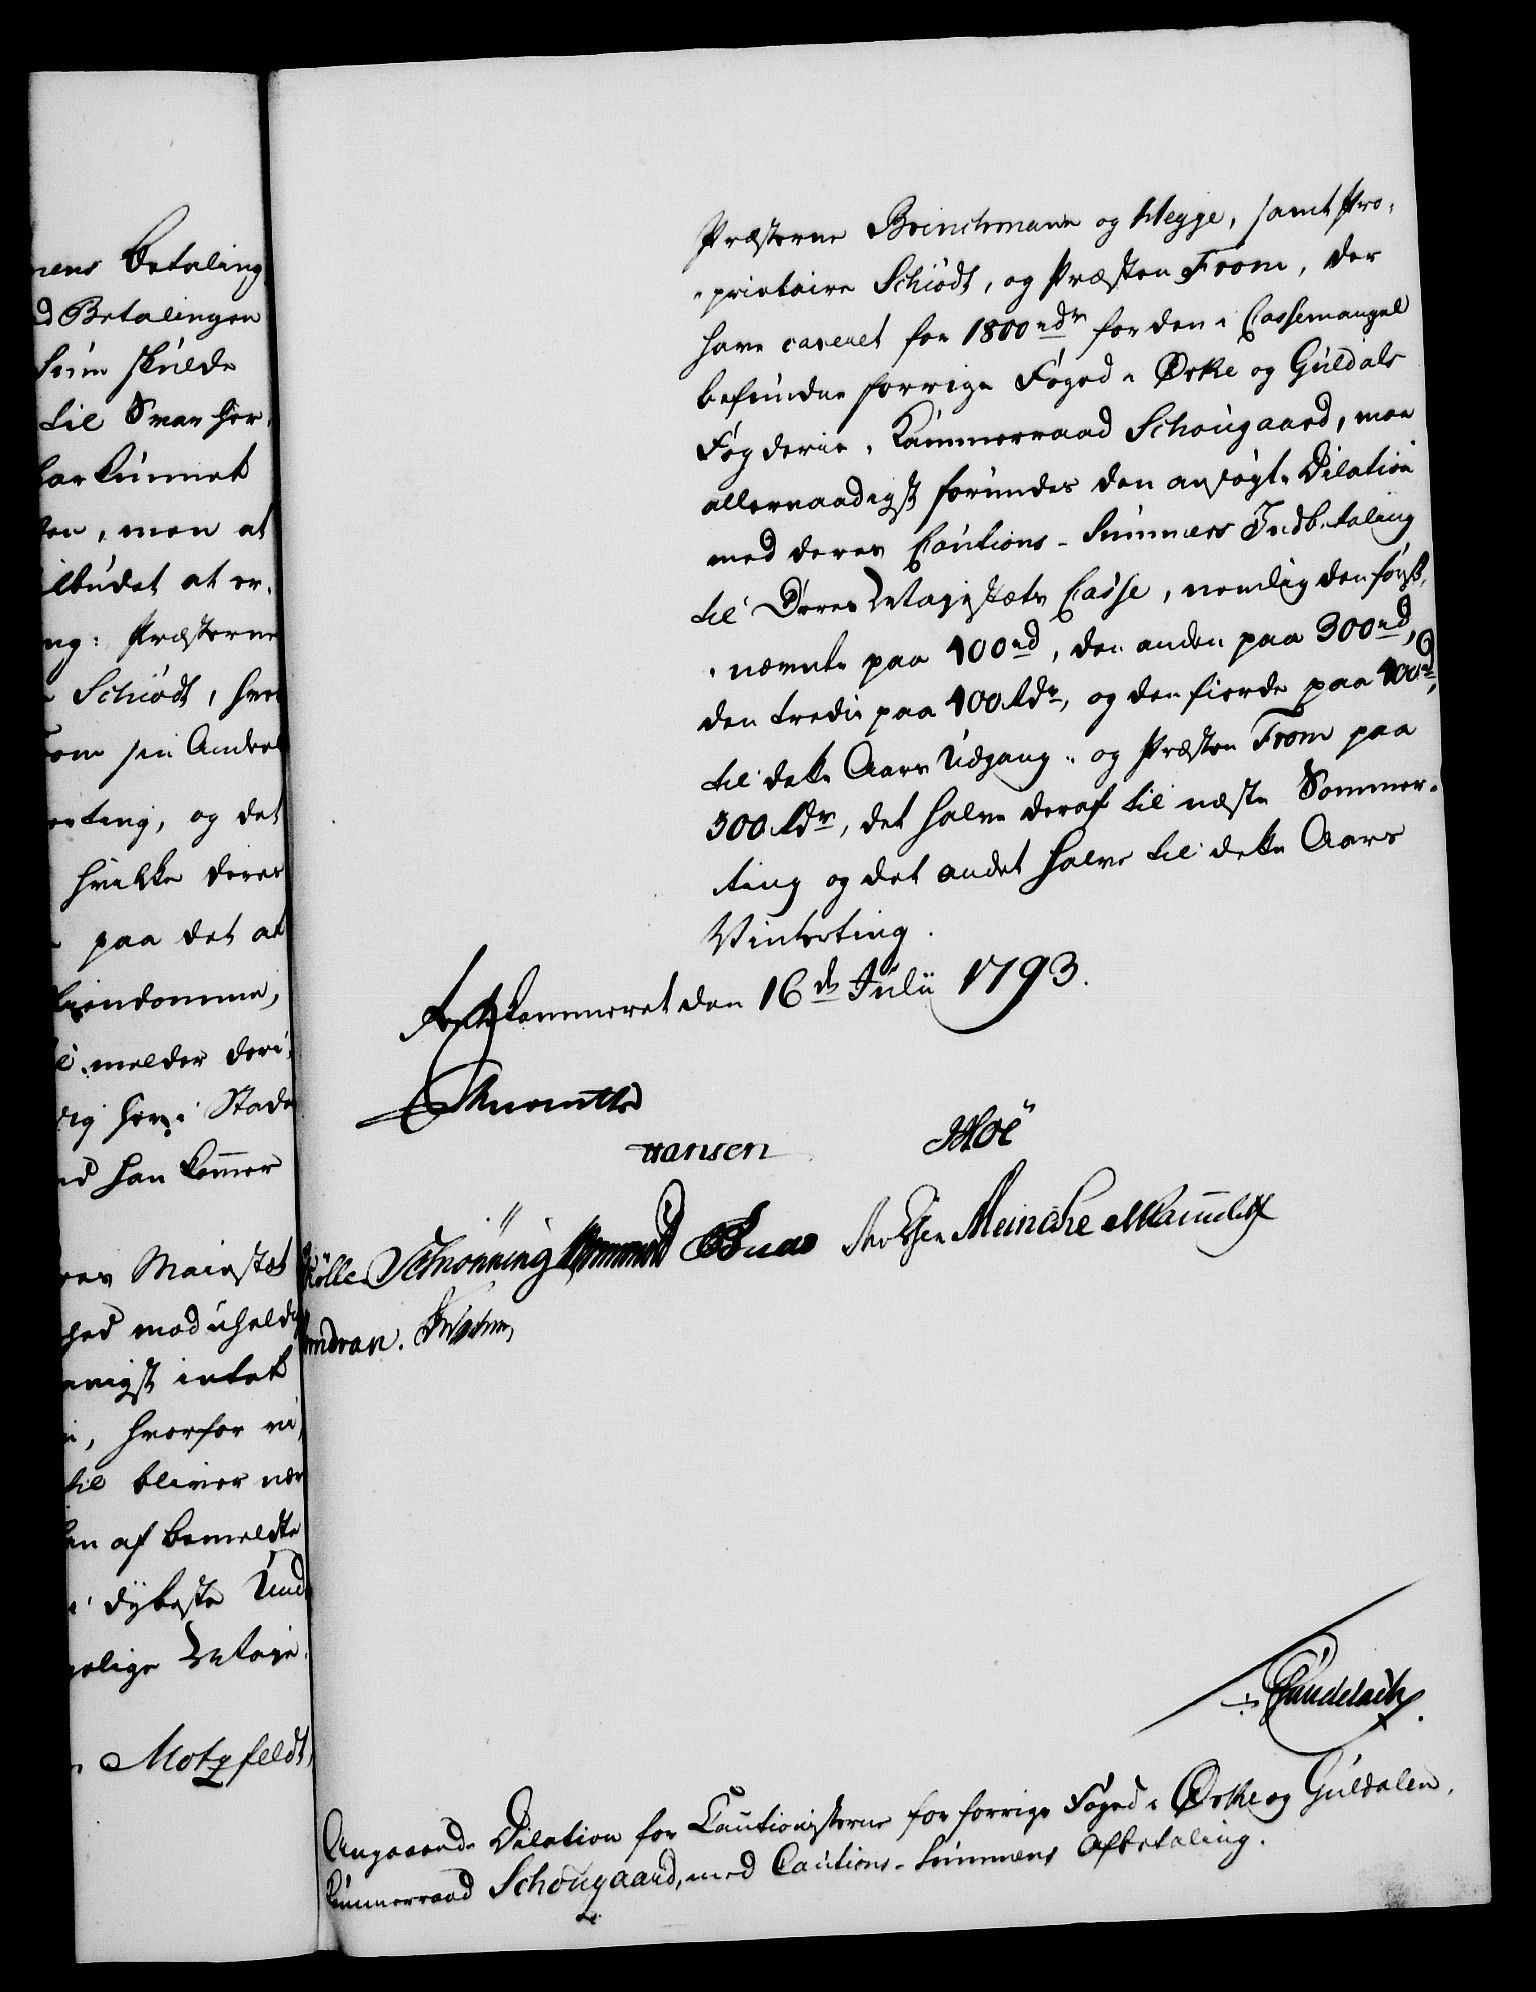 nens Betaling
d Betalingen
Sum skulde
til Svar her-
har kunnet
ten, men at
ilbudet at er-
ng: Præsterne
Schiödt, hver
om sin Andeel
erting, og det
hvilke deres
paa det at
Eiendomme,
melder deri-
rig her i Stade
nd han kommer
res Majestæt
hed mod uheldig
nigst intet
i, hvorfor vi
til bliver nær
en af bemeldte
i dybeste Und
elige Maje-
Motzfeldt,
Præsterne Brinchmann og Hegge, samt Pro-
-prietaire Schiödt, og Præsten From, der
have caveret for 1800 rdr for den i Cassemangel
befundne forrige Foged i Örke og Guldals
Fogderie, Kammerraad Schougaard, maa
allernaadigst forundes den ansøgte Dilation
med deres Cautions-Summers Indbetaling
til Deres Majestæts Casse, nemlig den først-
-nævnte paa 400 rd, den anden paa 300 rd,
den tredie paa 400 Rdr, og den fierde paa 400 rd,
til dette Aars Udgang, og Præsten From paa
300 Rdr, det halve deraf til næste Sommer-
ting og det andet halve til dette Aars
Vinterting.
Rentekammeret den 16de Julii 1793.
Hansen Hoë
Schönning Meincke
Angaaende Dilation for Cautionisterne for forrige Foged i Örke og Guldalen,
Kammerraad Schougaard, med Cautions-Summens Afbetaling.